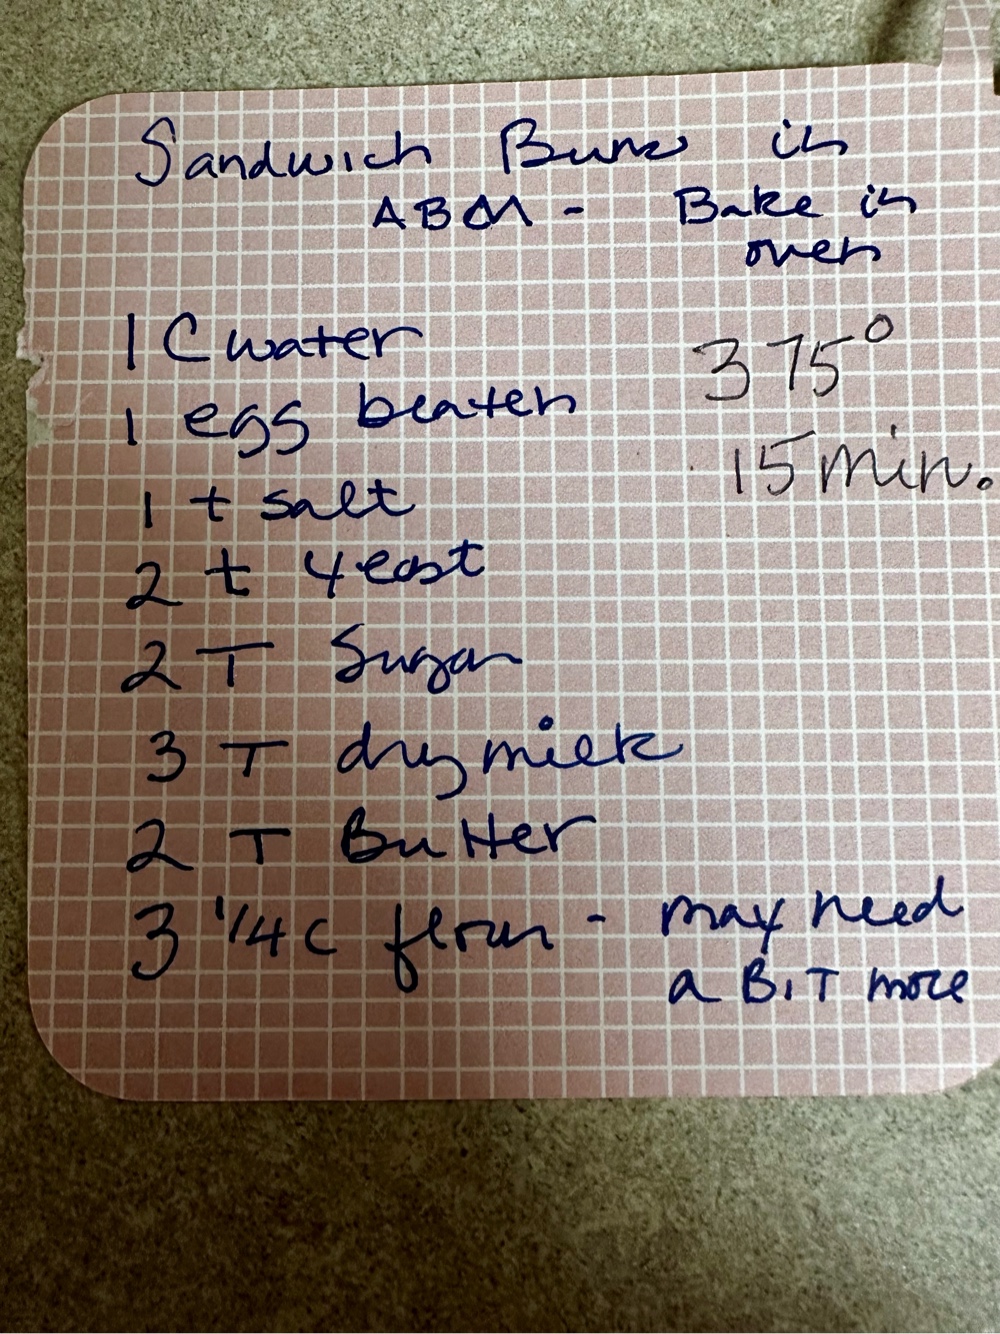 Sandwich Buns in
ABM - Bake in
oven
1 C water
375°
1 egg beaten
15 min.
1 t salt
2 t yeast
2 T Sugar
3 T dry milk
2 T Butter
3 1/4 c flour - may need
a BiT more